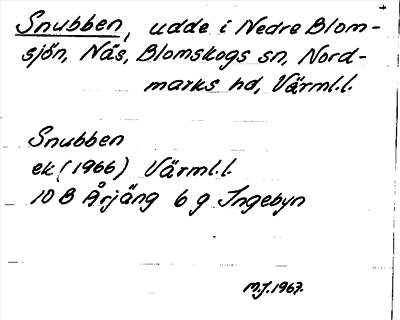 Snubben, udde i Nedre Blom-
sjön, Näs, Blomskogs sn, Nord-
marks hd, Värml.l.
Snubben
ek (1966) Värml.l.
10 B Årjäng 6 g Ingebyn
M.J. 1967.